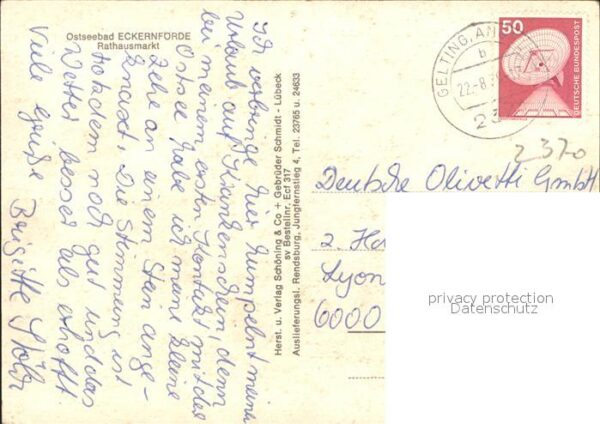 Ostseebad ECKERNFÖRDE
Rathausmarkt
Ich verbringe hier humpelnd meinen
Urlaub auf Krankenschein, denn
bei meinem ersten Kontakt mit der
Ostsee habe ich meine kleine
Zehe an einem Stein ange-
knaxt. Die Stimmung ist
trotzdem noch gut und das
Wetter besser als erhofft
Viele Grüße Brigitte
Herst. u. Verlag Schöning & Co + Gebrüder Schmidt - Lübeck
sv Bestellnr. Ecf 317
Auslieferungsl. Rendsburg, Jungfernstieg 4, Tel. 23765 u. 24633
GELTING, AN
b
22.-8.
23
50
DEUTSCHE BUNDESPOST
2370
Deutsche Olivetti GmbH
2. H
Lyon
6000
privacy protection
Datenschutz